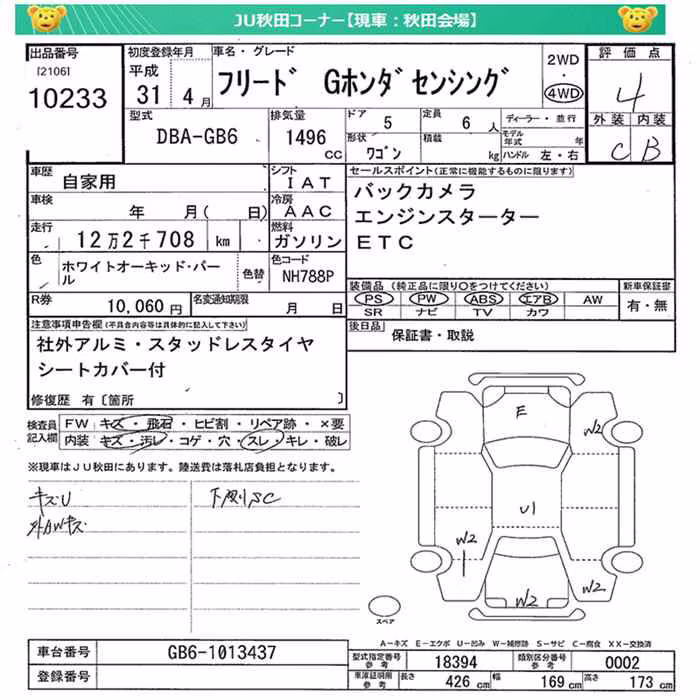 JU秋田コーナー【現車：秋田会場】
出品番号
[2106]
10233
初度登録年月
平成
31 4月
車名・グレード
フリード Gホンダセンシング
2WD
・
4WD
評価点
4
外装 内装
C B
型式
DBA-GB6
排気量
1496
cc
ドア
5
定員
6 人
形状
ワゴン
積載
kg
ディーラー・並行
モデル年式 年
ハンドル 左・右
車歴
自家用
シフト
IAT
車検
年 月( 日)
冷房
AAC
走行
12万2千708 km
燃料
ガソリン
色
ホワイトオーキッド・パール
色替
色コード
NH788P
R券
10,060円
名変通知期限
月 日
セールスポイント(正常に機能するものに限ります)
バックカメラ
エンジンスターター
ETC
装備品(純正品に限り○をつけてください)
PS PW ABS エアB AW
SR ナビ TV カワ
新車保証書
有・無
後日品
保証書・取説
注意事項申告欄(不具合内容等は具体的に記入して下さい)
社外アルミ・スタッドレスタイヤ
シートカバー付
修復歴 有〔箇所 〕
検査員記入欄
FW キズ・飛石・ヒビ割・リペア跡・×要
内装 キズ・汚レ・コゲ・穴・スレ・キレ・破レ
※現車はJU秋田にあります。陸送費は落札店負担となります。
キズU
外AWキズ
下廻りSC
E
W2
U1
W2
W2
W2
スペア
A－キズ E－エクボ U－凹み W－補修跡 S－サビ C－腐食 XX－交換済
車台番号
GB6-1013437
登録番号
型式指定番号 参考
18394
類別区分番号 参考
0002
車庫証明用 参考
長さ 426 cm
幅 169 cm
高さ 173 cm